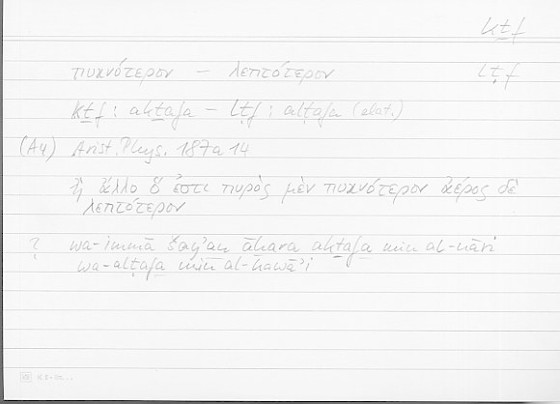 kṯf
πυκνότερον — λεπτότερον lṭf
kṯf : akṯafa — lṭf : alṭafa (elat.)
(Au) Arist. Phys. 187a14
ἢ ἄλλο ὅ ἐστι πυρὸς μὲν πυκνότερον ἀέρος δὲ
λεπτότερον
? wa-immā šayʾan āḫara akṯafa min al-nāri
wa-alṭafa min al-hawāʾi